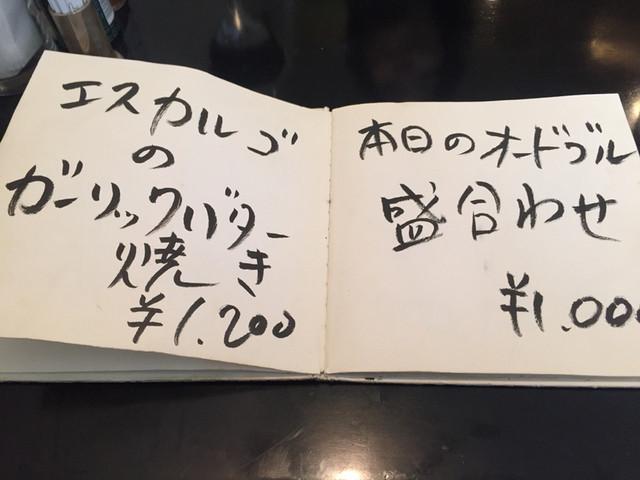 エスカルゴ
の
ガーリックバター
焼き
¥1,200
本日のオードヴル
盛合わせ
¥1,000